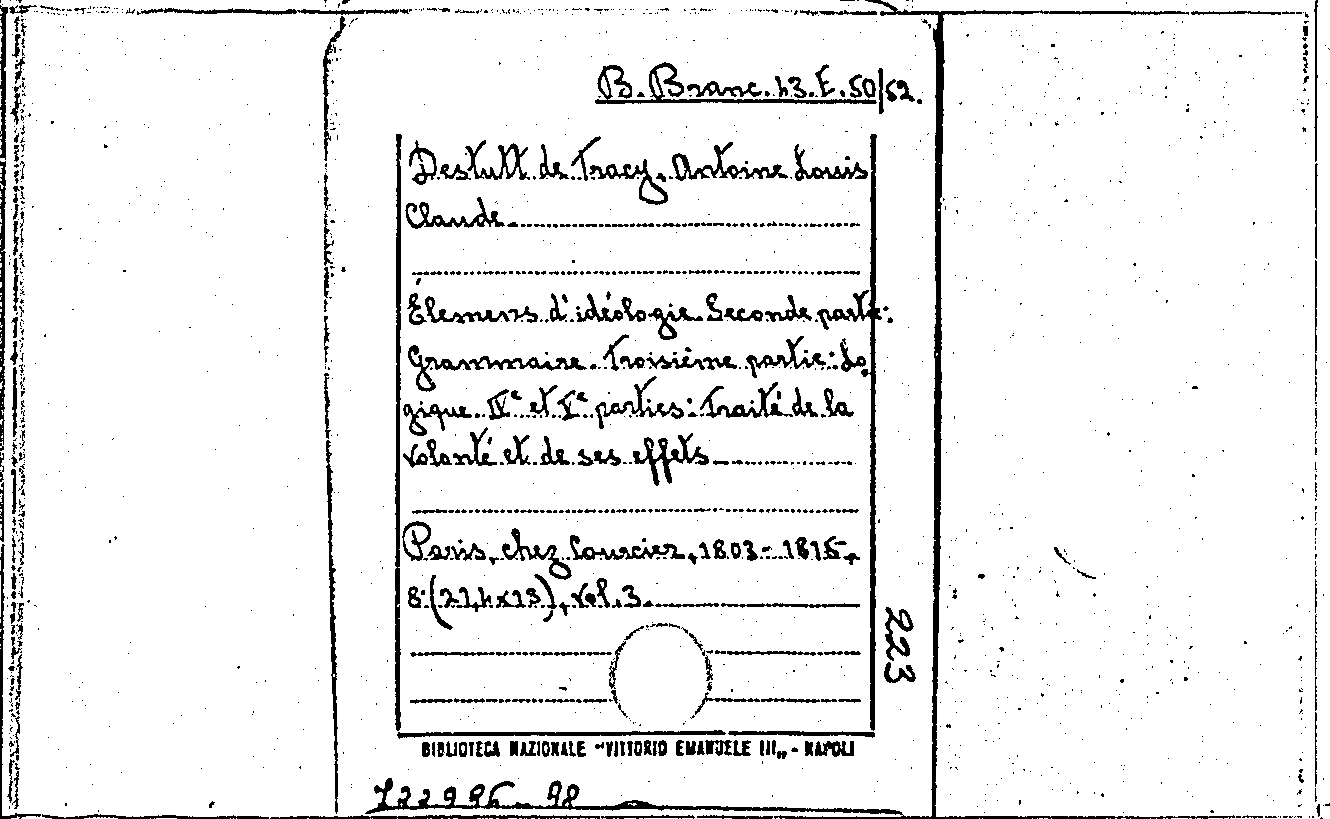 B. Branc. 43. E. 50/52.
Destutt de Tracy, Antoine Louis
Claude
Élemens d'idéologie. Seconde partie:
Grammaire. Troisième partie: Lo
gique. IVe et Ve parties: Traité de la
volonté et de ses effets
Paris, chez Courcier, 1803-1815,
8° (21,4x13), vol. 3.
223
BIBLIOTECA NAZIONALE "VITTORIO EMANUELE III„ - NAPOLI